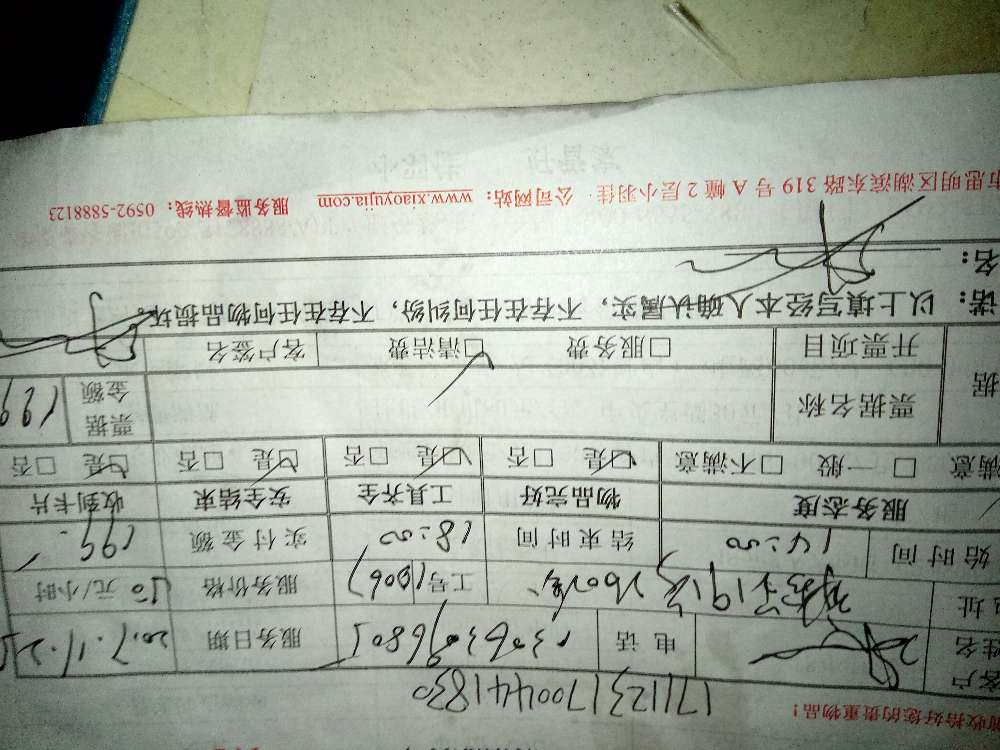 请收拾好您的贵重物品！
1711231700441830
客户姓名 电话 13063096801 服务日期 2017.11.25
地址 工号 1006 服务价格 50 元/小时
始时间 14:00 结束时间 18:00 实付金额 199.
服务态度 物品完好 工具齐全 安全结束 收到卡片
满意 □一般 □不满意 ☑是 □否 ☑是 □否 ☑是 □否 ☑是 □否
据 票据名称 票据金额 199
开票项目 □服务费 ☑清洁费 客户签名
诺：以上填写经本人确认属实，不存在任何纠纷，不存在任何物品损坏。
名：
市思明区湖滨东路 319 号 A 幢 2 层小羽佳 公司网站：www.xiaoyujia.com 服务监督热线：0592-5888123